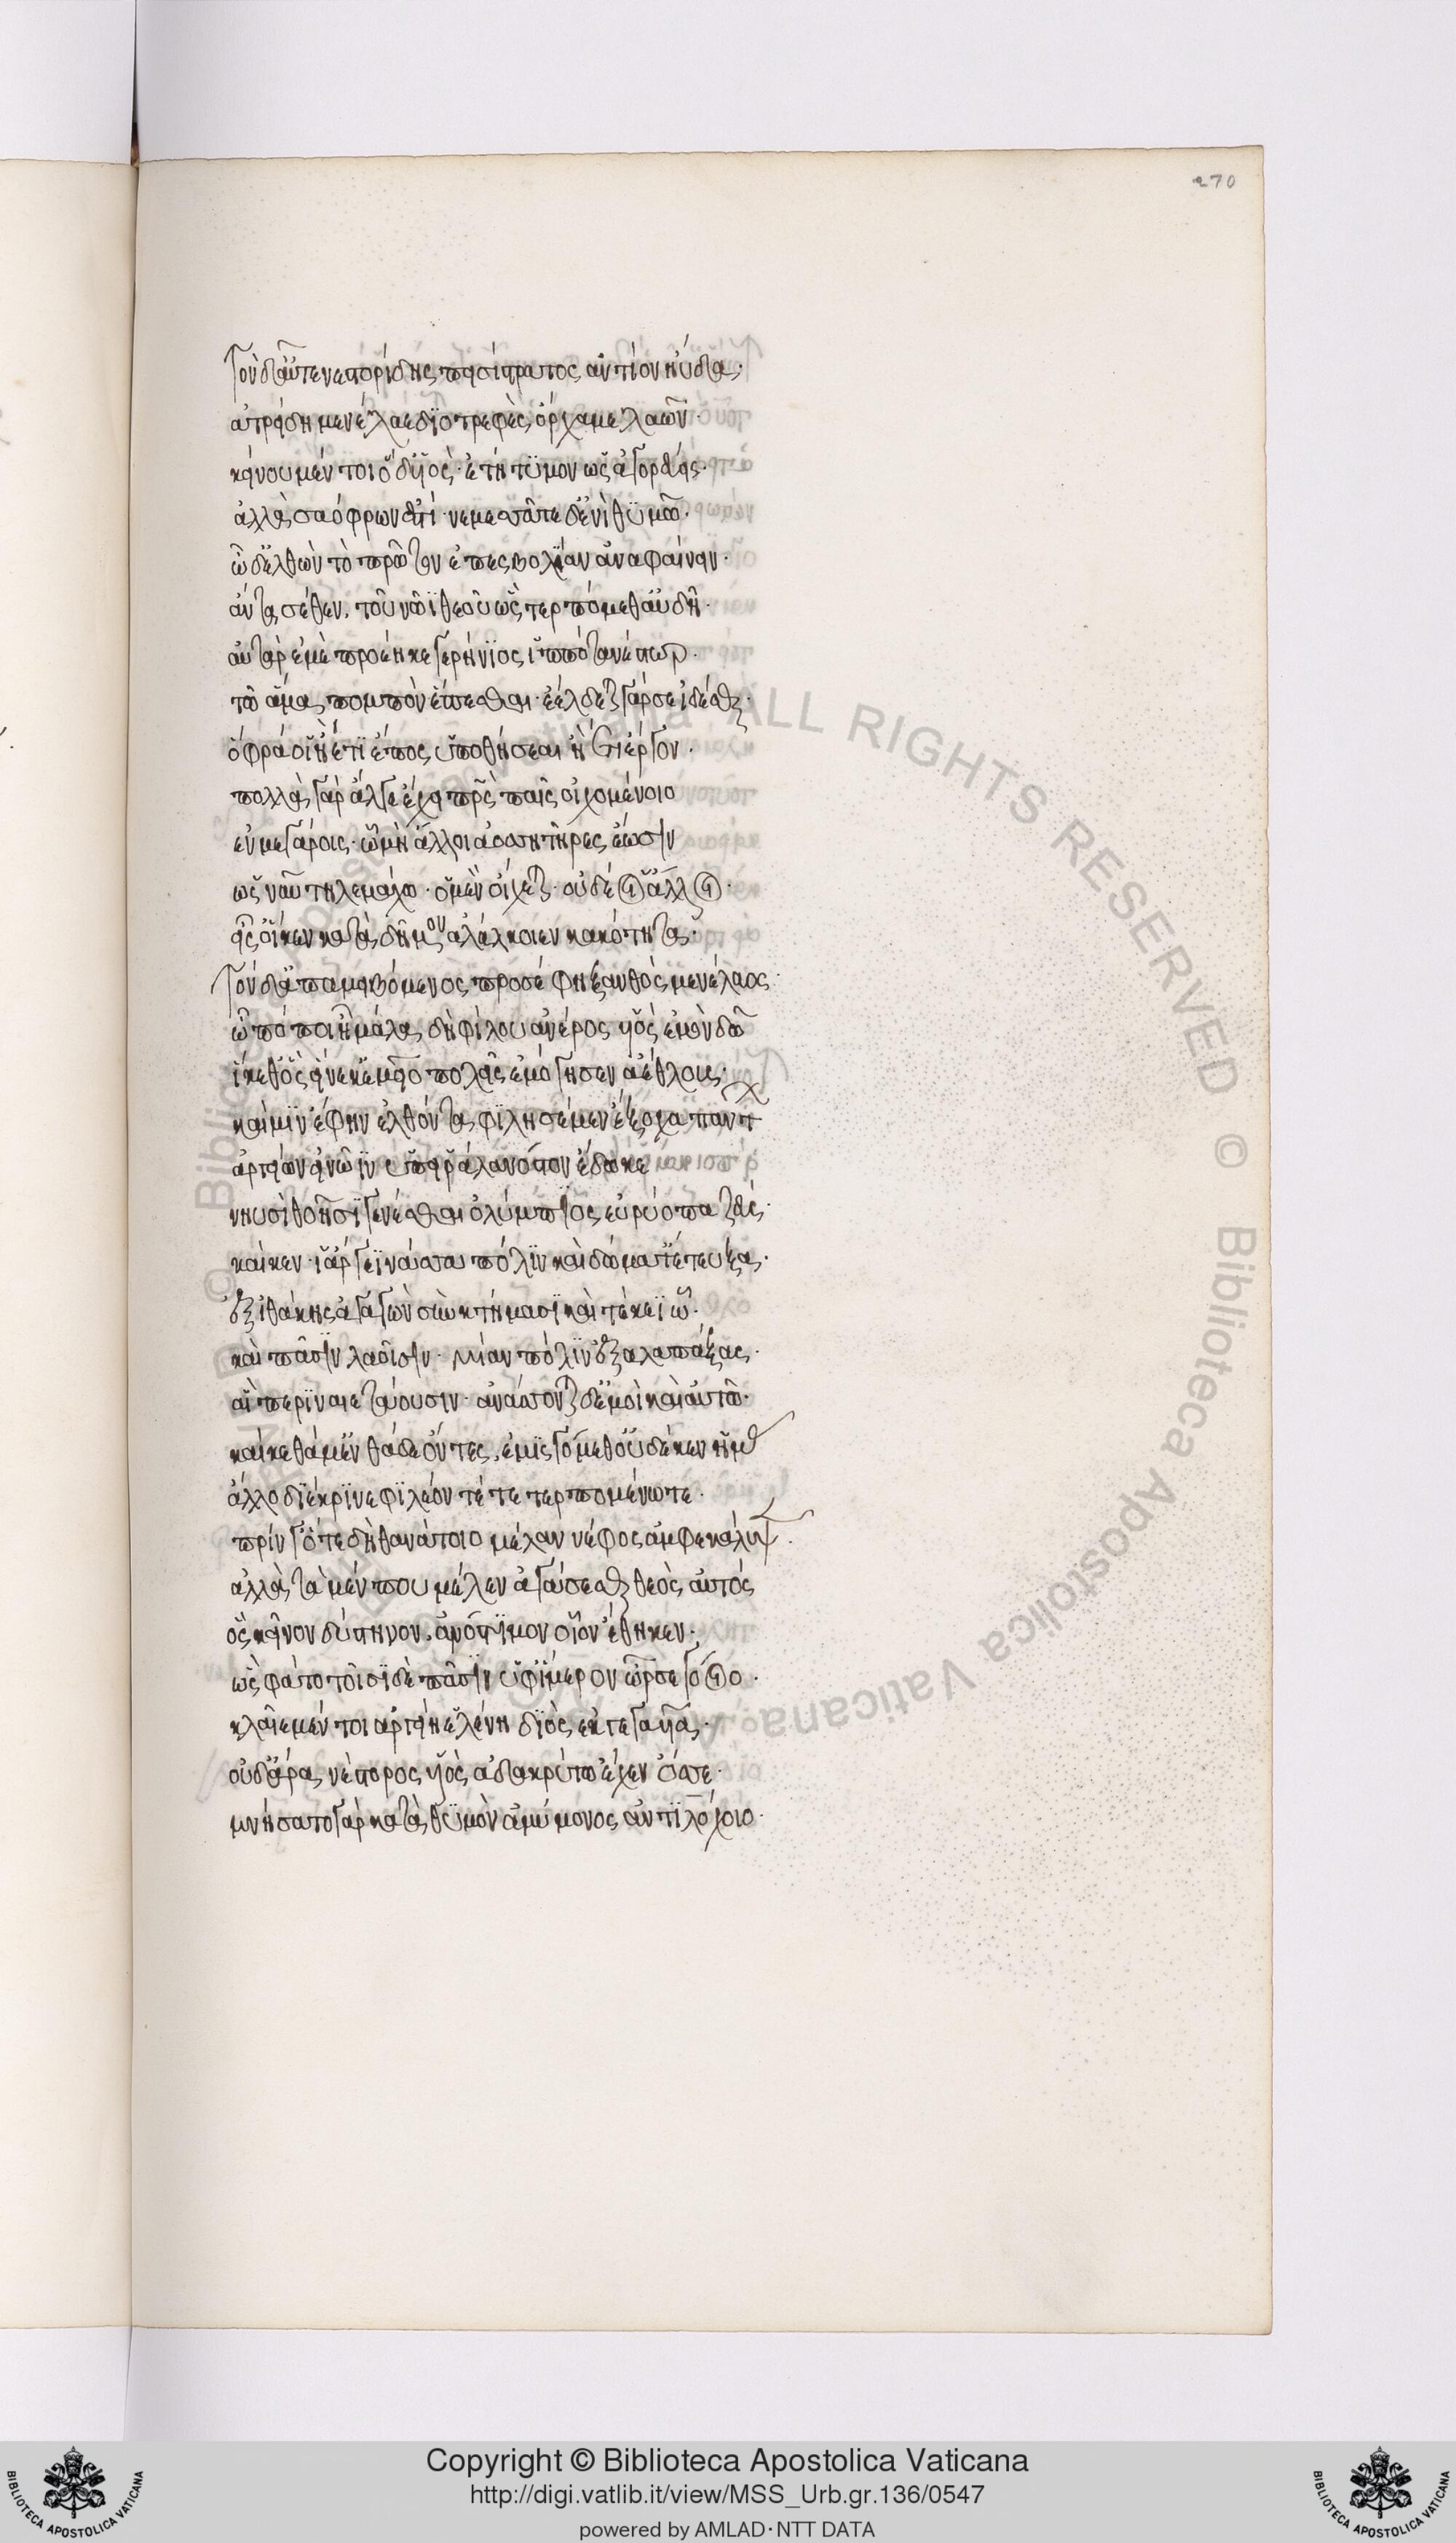 270
Τὸν δ' αὖτε νεστορίδης πεισίστρατος ἀντίον ηὔδα·
ἀτρείδη μενέλαε διοτρεφὲς ὄρχαμε λαῶν·
κείνου μέν τοι ὅδ' υἱὸς· ἐτήτυμον ὡς ἀγορεύεις·
ἀλλὰ σαόφρων ἐστί· νεμεσσᾶται δ' ἐνὶ θυμῶ·
ὧδ' ἐλθὼν τὸ πρῶτον ἐπεσβολίαν ἀναφαίνειν·
ἄντα σέθεν. τοῦ νῶϊ θεοῦ ὣς τερπόμεθ' αὐδῆ·
αὐτὰρ ἐμὲ προέηκε γερήνιος ἱππότα νέστωρ·
τῶ ἅμα πομπὸν ἕπεσθαι· ἐέλδετο γάρ σε ἰδέσθαι·
ὄφρά οἱ ἢ ἔτι ἔπος ὑποθήσεαι ἠέ τι ἔργον·
πολλὰ γὰρ ἄλγε' ἔχει πρς παῖς οἰχομένοιο
ἐν μεγάροις· ὧ μὴ ἄλλοι ἀοσσητῆρες ἔωσιν
ὡς νῦν τηλεμάχω· ὁ μὲν οἴχεται· οὐδέ οἱ ἄλλοι·
εἰσ' οἵ κεν κατὰ δῆμον ἀλάλκοιεν κακότητα·
Τὸν δ' ἀπαμειβόμενος προσέφη ξανθὸς μενέλαος·
ὦ πόποι ἦ μάλα δὴ φίλου ἀνέρος υἱὸς ἐμὸν δῶ
ἵκεθ' ὃς εἵνεκ' ἐμεῖο πολεῖς ἐμόγησεν ἀέθλους·
καί μιν ἔφην ἐλθόντα φιλησέμεν ἔξοχα πάντων
ἀργείων εἰ νῶϊν ὑπεὶρ ἅλα νόστον ἔδωκε
νηυσὶ θοῇσι γενέσθαι ὀλύμπιος εὐρύοπα ζεύς·
καί κεν οἱ ἄργεϊ νάσσα πόλιν καὶ δώματ' ἔτευξα·
ἐξ ἰθάκης ἀγαγὼν σὺν κτήμασι καὶ τέκεϊ ὧ·
καὶ πᾶσιν λαοῖσιν· μίαν πόλιν ἐξαλαπάξας·
αἳ περιναιετάουσιν· ἀνάσσονται δ' ἐμοὶ καὶ αὐτῶ·
καί κε θάμ' ἐνθάδ' ἐόντες, ἐμισγόμεθ' οὐδέ κεν ἡμέας
ἄλλο διέκρινε φιλέοντέ τε τερπομένω τε·
πρίν γ' ὅτε δὴ θανάτοιο μέλαν νέφος ἀμφεκάλυψεν·
ἀλλὰ τὰ μέν που μέλλεν ἀγάσεσθαι θεὸς αὐτός
ὃς κεῖνον δύστηνον, ἀνόστιμον οἶον ἔθηκεν·
ὣς φάτο τοῖσι δὲ πᾶσιν ὑφ' ἵμερον ὦρσε γόοιο·
κλαῖε μέν τοι ἀργείη ἑλένη διὸς ἐκγεγαυῖα·
οὐδ' ἄρα νέστορος υἱὸς ἀδακρύτω ἔχεν ὄσσε·
μνήσατο γὰρ κατὰ θυμὸν ἀμύμονος ἀντιλόχοιο·
© Biblioteca Apostolica Vaticana ALL RIGHTS RESERVED © Biblioteca Apostolica Vaticana
Copyright © Biblioteca Apostolica Vaticana
http://digi.vatlib.it/view/MSS_Urb.gr.136/0547
powered by AMLAD·NTT DATA
BIBLIOTECA APOSTOLICA VATICANA
BIBLIOTECA APOSTOLICA VATICANA